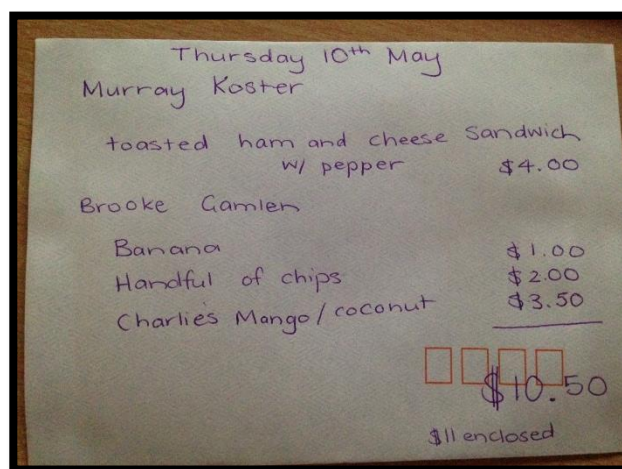 Thursday 10th May
Murray Koster
toasted ham and cheese sandwich
w/ pepper $4.00
Brooke Gamlen
Banana $1.00
Handful of chips $2.00
Charlies Mango/coconut $3.50
$10.50
$11 enclosed